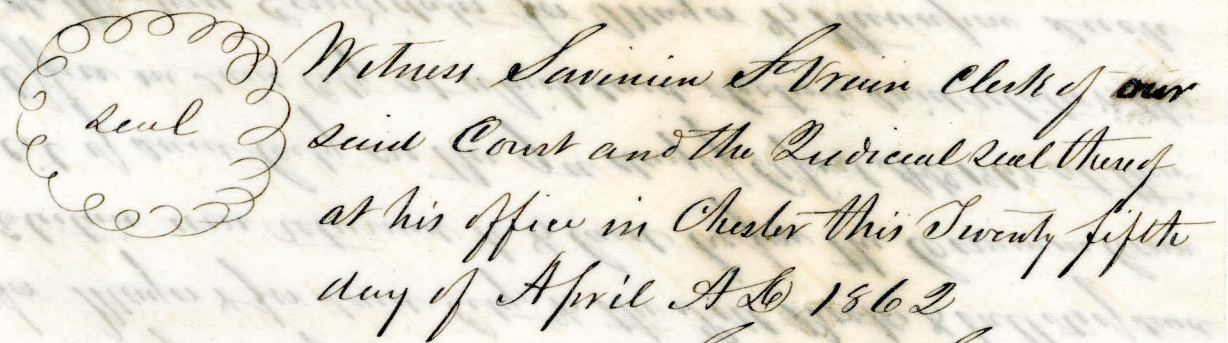 seal
Witness Savinien St Vrain Clerk of our
said Court and the Judicial seal thereof
at his office in Chester this Twenty fifth
day of April A D 1862